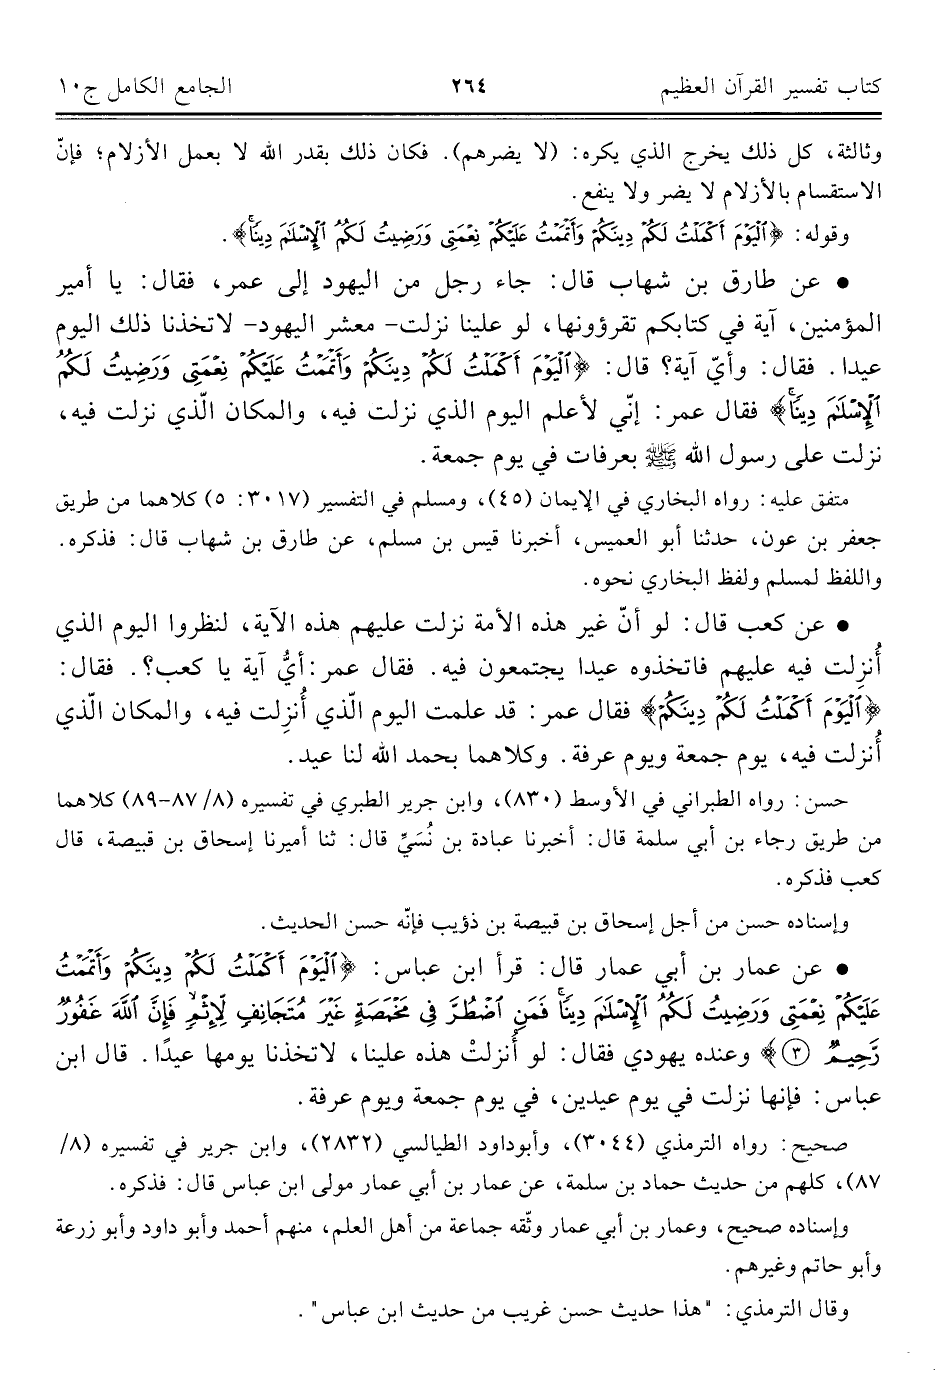 كتاب تفسير القرآن العظيم ٢٦٤ الجامع الكامل ج١٠
وثالثة، كل ذلك يخرج الذي يكره: (لا يضرهم). فكان ذلك بقدر الله لا بعمل الأزلام؛ فإنّ
الاستقسام بالأزلام لا يضر ولا ينفع.
وقوله: ﴿ٱلْيَوْمَ أَكْمَلْتُ لَكُمْ دِينَكُمْ وَأَتْمَمْتُ عَلَيْكُمْ نِعْمَتِى وَرَضِيتُ لَكُمُ ٱلْإِسْلَٰمَ دِينًاۚ﴾.
• عن طارق بن شهاب قال: جاء رجل من اليهود إلى عمر، فقال: يا أمير
المؤمنين، آية في كتابكم تقرؤونها، لو علينا نزلت- معشر اليهود- لاتخذنا ذلك اليوم
عيدا. فقال: وأيّ آية؟ قال: ﴿ٱلْيَوْمَ أَكْمَلْتُ لَكُمْ دِينَكُمْ وَأَتْمَمْتُ عَلَيْكُمْ نِعْمَتِى وَرَضِيتُ لَكُمُ
ٱلْإِسْلَٰمَ دِينًاۚ﴾ فقال عمر: إنّي لأعلم اليوم الذي نزلت فيه، والمكان الّذي نزلت فيه،
نزلت على رسول الله ﷺ بعرفات في يوم جمعة.
متفق عليه: رواه البخاري في الإيمان (٤٥)، ومسلم في التفسير (٣٠١٧: ٥) كلاهما من طريق
جعفر بن عون، حدثنا أبو العميس، أخبرنا قيس بن مسلم، عن طارق بن شهاب قال: فذكره.
واللفظ لمسلم ولفظ البخاري نحوه.
• عن كعب قال: لو أنّ غير هذه الأمة نزلت عليهم هذه الآية، لنظروا اليوم الذي
أُنزِلت فيه عليهم فاتخذوه عيدا يجتمعون فيه. فقال عمر:أيُّ آية يا كعب؟. فقال:
﴿ٱلْيَوْمَ أَكْمَلْتُ لَكُمْ دِينَكُمْ﴾ فقال عمر: قد علمت اليوم الّذي أُنزِلت فيه، والمكان الّذي
أُنزلت فيه، يوم جمعة ويوم عرفة. وكلاهما بحمد الله لنا عيد.
حسن: رواه الطبراني في الأوسط (٨٣٠)، وابن جرير الطبري في تفسيره (٨/ ٨٧-٨٩) كلاهما
من طريق رجاء بن أبي سلمة قال: أخبرنا عبادة بن نُسَيٍّ قال: ثنا أميرنا إسحاق بن قبيصة، قال
كعب فذكره.
وإسناده حسن من أجل إسحاق بن قبيصة بن ذؤيب فإنّه حسن الحديث.
• عن عمار بن أبي عمار قال: قرأ ابن عباس: ﴿ٱلْيَوْمَ أَكْمَلْتُ لَكُمْ دِينَكُمْ وَأَتْمَمْتُ
عَلَيْكُمْ نِعْمَتِى وَرَضِيتُ لَكُمُ ٱلْإِسْلَٰمَ دِينًاۚ فَمَنِ ٱضْطُرَّ فِى مَخْمَصَةٍ غَيْرَ مُتَجَانِفٍ لِّإِثْمٍۙ فَإِنَّ ٱللَّهَ غَفُورٌ
رَّحِيمٌ ٣﴾ وعنده يهودي فقال: لو أُنزلتْ هذه علينا، لاتخذنا يومها عيدًا. قال ابن
عباس: فإنها نزلت في يوم عيدين، في يوم جمعة ويوم عرفة.
صحيح: رواه الترمذي (٣٠٤٤)، وأبوداود الطيالسي (٢٨٣٢)، وابن جرير في تفسيره (٨/
٨٧)، كلهم من حديث حماد بن سلمة، عن عمار بن أبي عمار مولى ابن عباس قال: فذكره.
وإسناده صحيح، وعمار بن أبي عمار وثّقه جماعة من أهل العلم، منهم أحمد وأبو داود وأبو زرعة
وأبو حاتم وغيرهم.
وقال الترمذي: "هذا حديث حسن غريب من حديث ابن عباس".